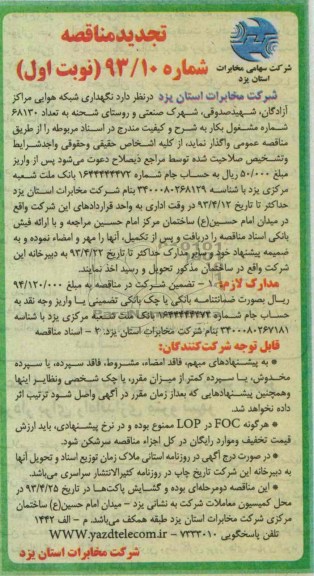 تجدیدمناقصه
شماره ۹۳/۱۰ (نوبت اول)
شرکت سهامی مخابرات
استان یزد
شرکت مخابرات استان یزد درنظر دارد نگهداری شبکه هوایی مراکز
آزادگان، شهیدصدوقی، شهرک صنعتی و روستای شحنه به تعداد ۶۸۱۳۰
شماره مشغول بکار به شرح و کیفیت مندرج در اسناد مربوطه را از طریق
مناقصه عمومی واگذار نماید، از کلیه اشخاص حقیقی وحقوقی واجدشرایط
وتشخیص صلاحیت شده توسط مراجع ذیصلاح دعوت می‌شود پس از واریز
مبلغ ۵۰/۰۰۰ ریال به حساب جام شماره ۱۶۴۴۴۴۴۴۷۲ بانک ملت شعبه
مرکزی یزد با شناسه ۳۴۰۰۰۸۰۲۶۸۱۲۹ بنام شرکت مخابرات استان یزد
حداکثر تا تاریخ ۹۳/۴/۱۲ در وقت اداری به واحد قراردادهای این شرکت واقع
در میدان امام حسین(ع) ساختمان مرکز امام حسین مراجعه و با ارائه فیش
بانکی اسناد مناقصه را دریافت و پس از تکمیل، آنها را مهر و امضاء نموده و به
ضمیمه پیشنهاد خود وسایر مدارک حداکثر تا تاریخ ۹۳/۴/۲۲ به دبیرخانه این
شرکت واقع در ساختمان مذکور تحویل و رسید اخذ نمایند.
مدارک لازم: ۱ - تضمین شرکت در مناقصه به مبلغ ۹۴/۱۲۰/۰۰۰
ریال بصورت ضمانتنامه بانکی یا چک بانکی تضمینی یا واریز وجه نقد به
حساب جام شماره ۱۶۴۴۴۴۴۴۷۲ بانک ملت شعبه مرکزی یزد با شناسه
۳۴۰۰۰۸۰۲۶۷۱۸۱ بنام شرکت مخابرات استان یزد: ۲ - اسناد مناقصه
قابل توجه شرکت‌کنندگان:
* به پیشنهادهای مبهم، فاقد امضاء، مشروط، فاقد سپرده، یا سپرده
مخدوش، یا سپرده کمتر از میزان مقرر، یا چک شخصی ونظایر اینها
وهمچنین پیشنهادهایی که بعداز زمان مقرر در آگهی واصل شود ترتیب اثر
داده نخواهد شد.
* هرگونه FOC در LOP ممنوع بوده و در نرخ پیشنهادی، باید ارزش
قیمت تخفیف وموارد رایگان در کل اجزاء مناقصه سرشکن شود.
* در صورت درج آگهی در روزنامه استانی ملاک زمان توزیع اسناد و تحویل آنها
به دبیرخانه این شرکت تاریخ چاپ در روزنامه کثیرالانتشار سراسری می‌باشد.
* این مناقصه دومرحله‌ای بوده و گشایش پاکت‌ها در تاریخ ۹۳/۴/۲۵ در
محل کمیسیون معاملات شرکت به نشانی یزد - میدان امام حسین(ع) ساختمان
مرکزی شرکت مخابرات استان یزد طبقه همکف می‌باشد. م - الف ۱۴۴۲
تلفن پاسخگویی ۷۲۳۳۰۱۰ - WWW.yazdtelecom.ir
شرکت مخابرات استان یزد